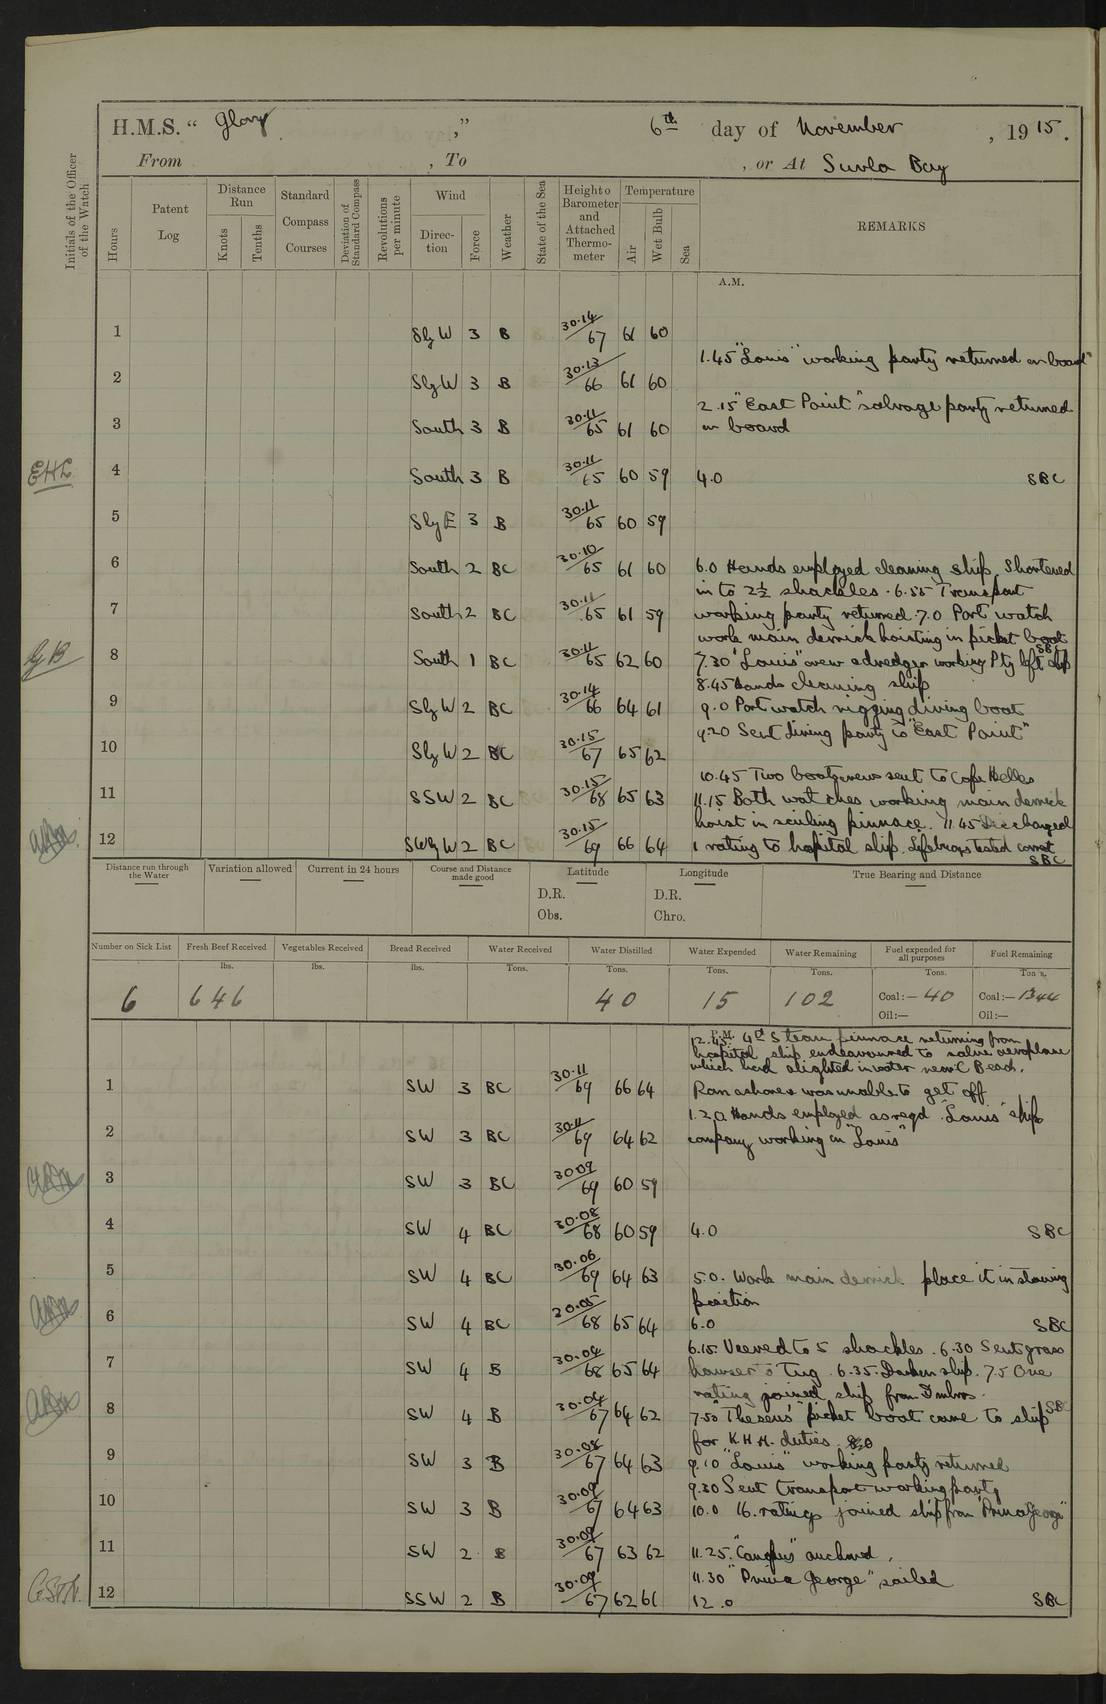 H.M.S. " Glory ," 6th day of November , 19 15.
From , To , or At Suvla Bay
Initials of the Officer of the Watch
Hours
Patent Log
Distance Run
Knots
Tenths
Standard Compass Courses
Deviation of Standard Compass
Revolutions per minute
Wind
Direction
Force
Weather
State of the Sea
Height of Barometer and Attached Thermometer
Temperature
Air
Wet Bulb
Sea
REMARKS
A.M.
1 Sly W 3 B 30.14/67 61 60
1.45 "Louis" working party returned on board
2 Sly W 3 B 30.13/66 61 60
2.15 "East Point" salvage party returned
3 South 3 B 30.11/65 61 60 on board
EHL 4 South 3 B 30.11/65 60 59 4.0 SBC
5 Sly E 3 B 30.11/65 60 59
6 South 2 BC 30.10/65 61 60 6.0 Hands employed cleaning ship. Shortened
in to 2½ shackles. 6.55 Transport
7 South 2 BC 30.11/65 61 59 working party returned. 7.0 Port watch
work main derrick hoisting in picket boat
SBC
8 South 1 BC 30.11/65 62 60 7.30 "Louis" working Pty left ship
8.45 Hands cleaning ship
9 Sly W 2 BC 30.14/66 64 61 9.0 Port watch rigging diving boat
9.20 Sent diving party to "East Point"
10 Sly W 2 BC 30.15/67 65 62
10.45 Two boats crews sent to Cape Helles
11 SSW 2 BC 30.15/68 65 63 11.15 Both watches working main derrick
hoist in sailing pinnace. 11.45 Discharged
12 SWly W 2 BC 30.15/69 66 64 1 rating to hospital ship. Lifebuoys tested correct
SBC
Distance run through the Water
Variation allowed
Current in 24 hours
Course and Distance made good
Latitude
Longitude
True Bearing and Distance
D.R. D.R.
Obs. Chro.
Number on Sick List
Fresh Beef Received
Vegetables Received
Bread Received
Water Received
Water Distilled
Water Expended
Water Remaining
Fuel expended for all purposes
Fuel Remaining
lbs. lbs. lbs. Tons. Tons. Tons. Tons. Tons. Tons.
6 646 40 15 102 Coal:— 40 Coal:— 1344
Oil:— Oil:—
P.M.
12.45 4th Steam pinnace returning from
hospital ship endeavoured to salve aeroplane
which had alighted in water near C Beach.
1 SW 3 BC 30.11/69 66 64 Ran ashore & was unable to get off
1.20 Hands employed as reqd. "Louis" ships
2 SW 3 BC 30.11/69 64 62 company working in "Louis"
3 SW 3 BC 30.09/69 60 59
4 SW 4 BC 30.08/68 60 59 4.0 SBC
5 SW 4 BC 30.06/69 64 63 5.0. Work main derrick place it in stowing
position
6 SW 4 BC 30.05/68 65 64 6.0 SBC
6.15 Veered to 5 shackles. 6.30 Sent grass
7 SW 4 B 30.04/68 65 64 hawser to Tug. 6.35. Darken ship. 7.5 One
rating joined ship from Imbros.
8 SW 4 B 30.04/67 64 62 7.50 "Theseus" picket boat came to ship SBC
for K.H.M. duties. 8.0
9 SW 3 B 30.08/67 64 63 9.10 "Louis" working party returned
9.30 Sent transport working party
10 SW 3 B 30.09/67 64 63 10.0 16 ratings joined ship from "Prince George"
11 SW 2 B 30.09/67 63 62 11.25. "Canopus" anchored.
11.30 "Prince George" sailed
12 SSW 2 B 30.09/67 62 61 12.0 SBC